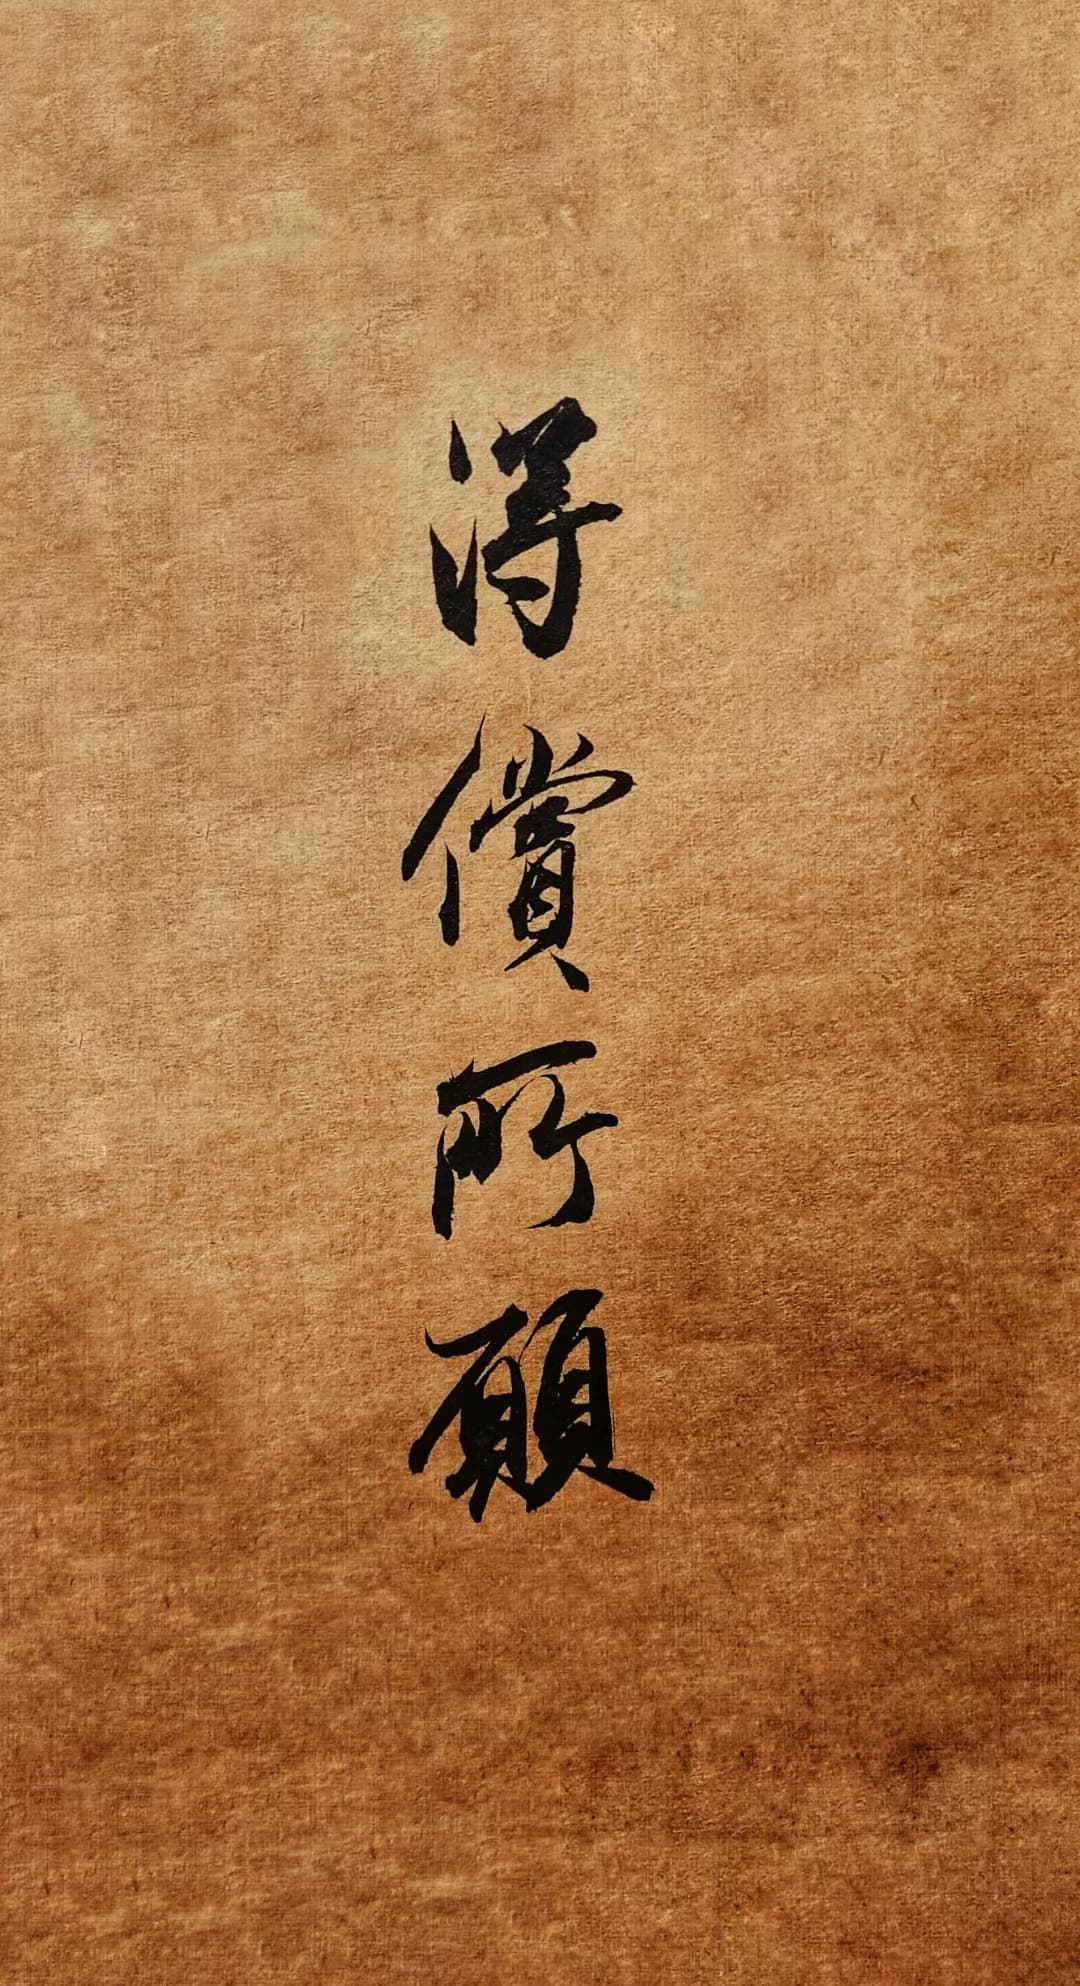 得償所願